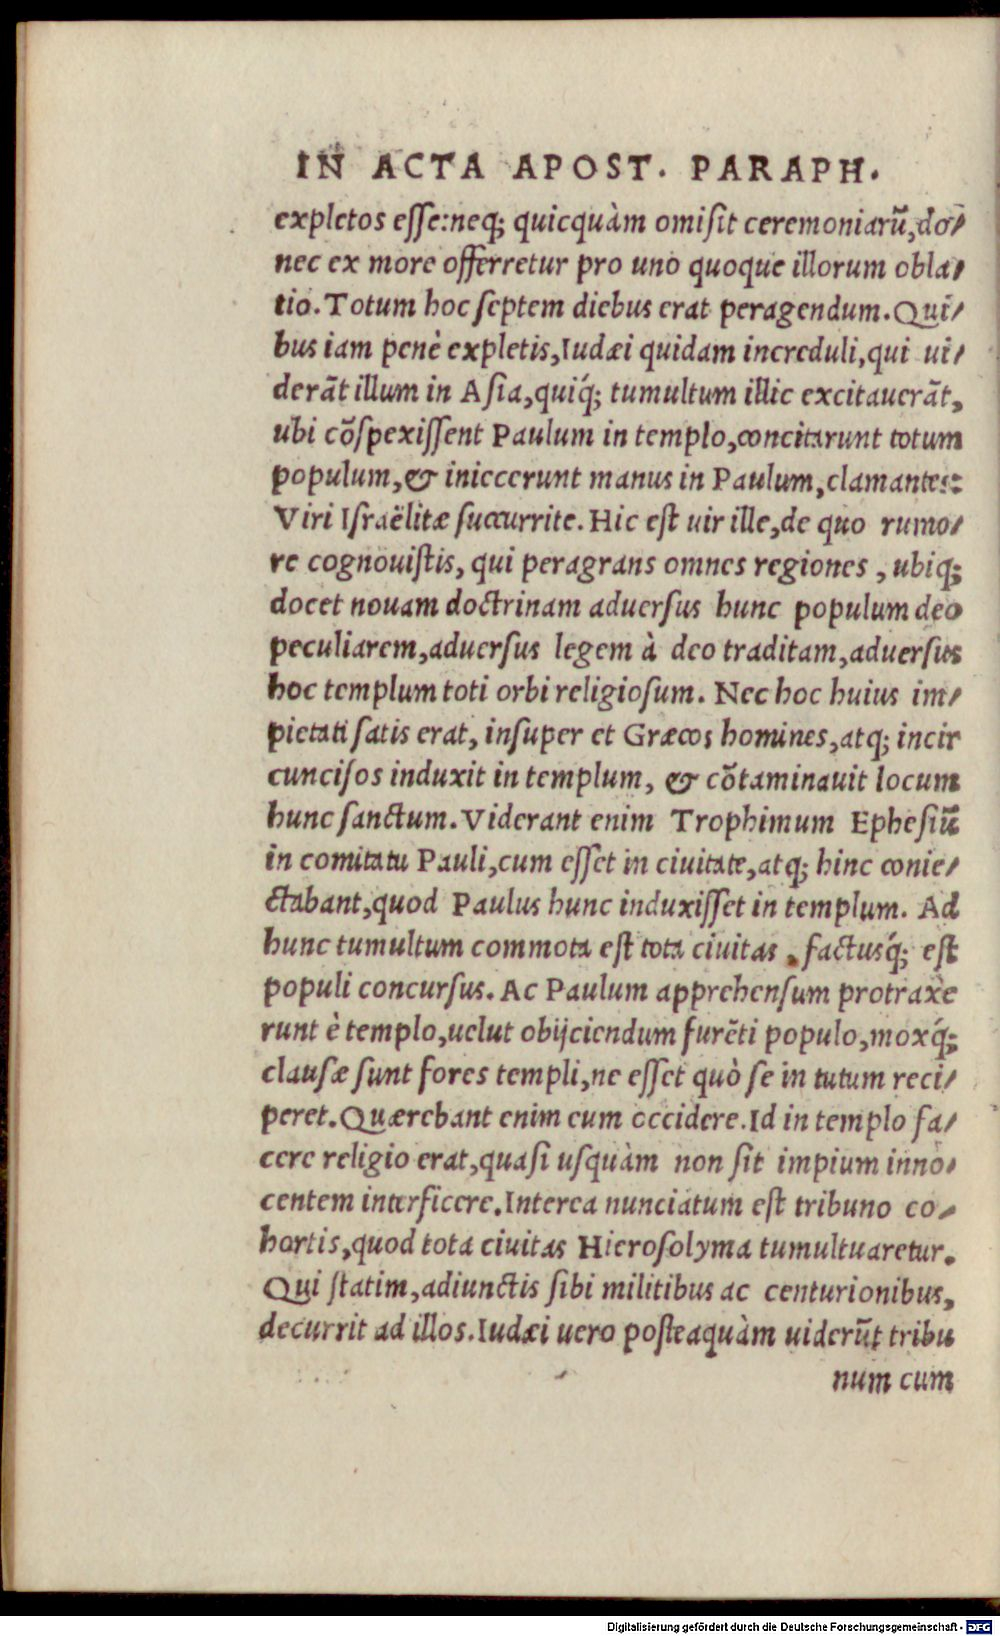 IN ACTA APOST. PARAPH.
expletos esse:neq; quicquàm omisit ceremoniarũ,do-
nec ex more offerretur pro uno quoque illorum obla-
tio. Totum hoc septem diebus erat peragendum. Qui-
bus iam penè expletis, Iudæi quidam increduli, qui ui-
derãt illum in Asia, quiq́; tumultum illic excitauerãt,
ubi cõspexissent Paulum in templo, concitarunt totum
populum, & iniecerunt manus in Paulum, clamantes:
Viri Israëlitæ succurrite. Hic est uir ille, de quo rumo-
re cognouistis, qui peragrans omnes regiones, ubiq;
docet nouam doctrinam aduersus hunc populum deo
peculiarem, aduersus legem à deo traditam, aduersus
hoc templum toti orbi religiosum. Nec hoc huius im-
pietati satis erat, insuper et Græcos homines, atq; incir
cuncisos induxit in templum, & cõtaminauit locum
hunc sanctum. Viderant enim Trophimum Ephesiũ
in comitatu Pauli, cum esset in ciuitate, atq; hinc conie-
ctabant, quod Paulus hunc induxisset in templum. Ad
hunc tumultum commota est tota ciuitas, factusq́; est
populi concursus. Ac Paulum apprehensum protraxe
runt è templo, uelut obijciendum furẽti populo, moxq́;
clausæ sunt fores templi, ne esset quò se in tutum reci-
peret. Quærebant enim eum occidere. Id in templo fa-
cere religio erat, quasi usquàm non sit impium inno-
centem interficere. Interea nunciatum est tribuno co-
hortis, quod tota ciuitas Hierosolyma tumultuaretur.
Qui statim, adiunctis sibi militibus ac centurionibus,
decurrit ad illos. Iudæi uero posteaquàm uiderũt tribu
num cum
Digitalisierung gefördert durch die Deutsche Forschungsgemeinschaft - DFG